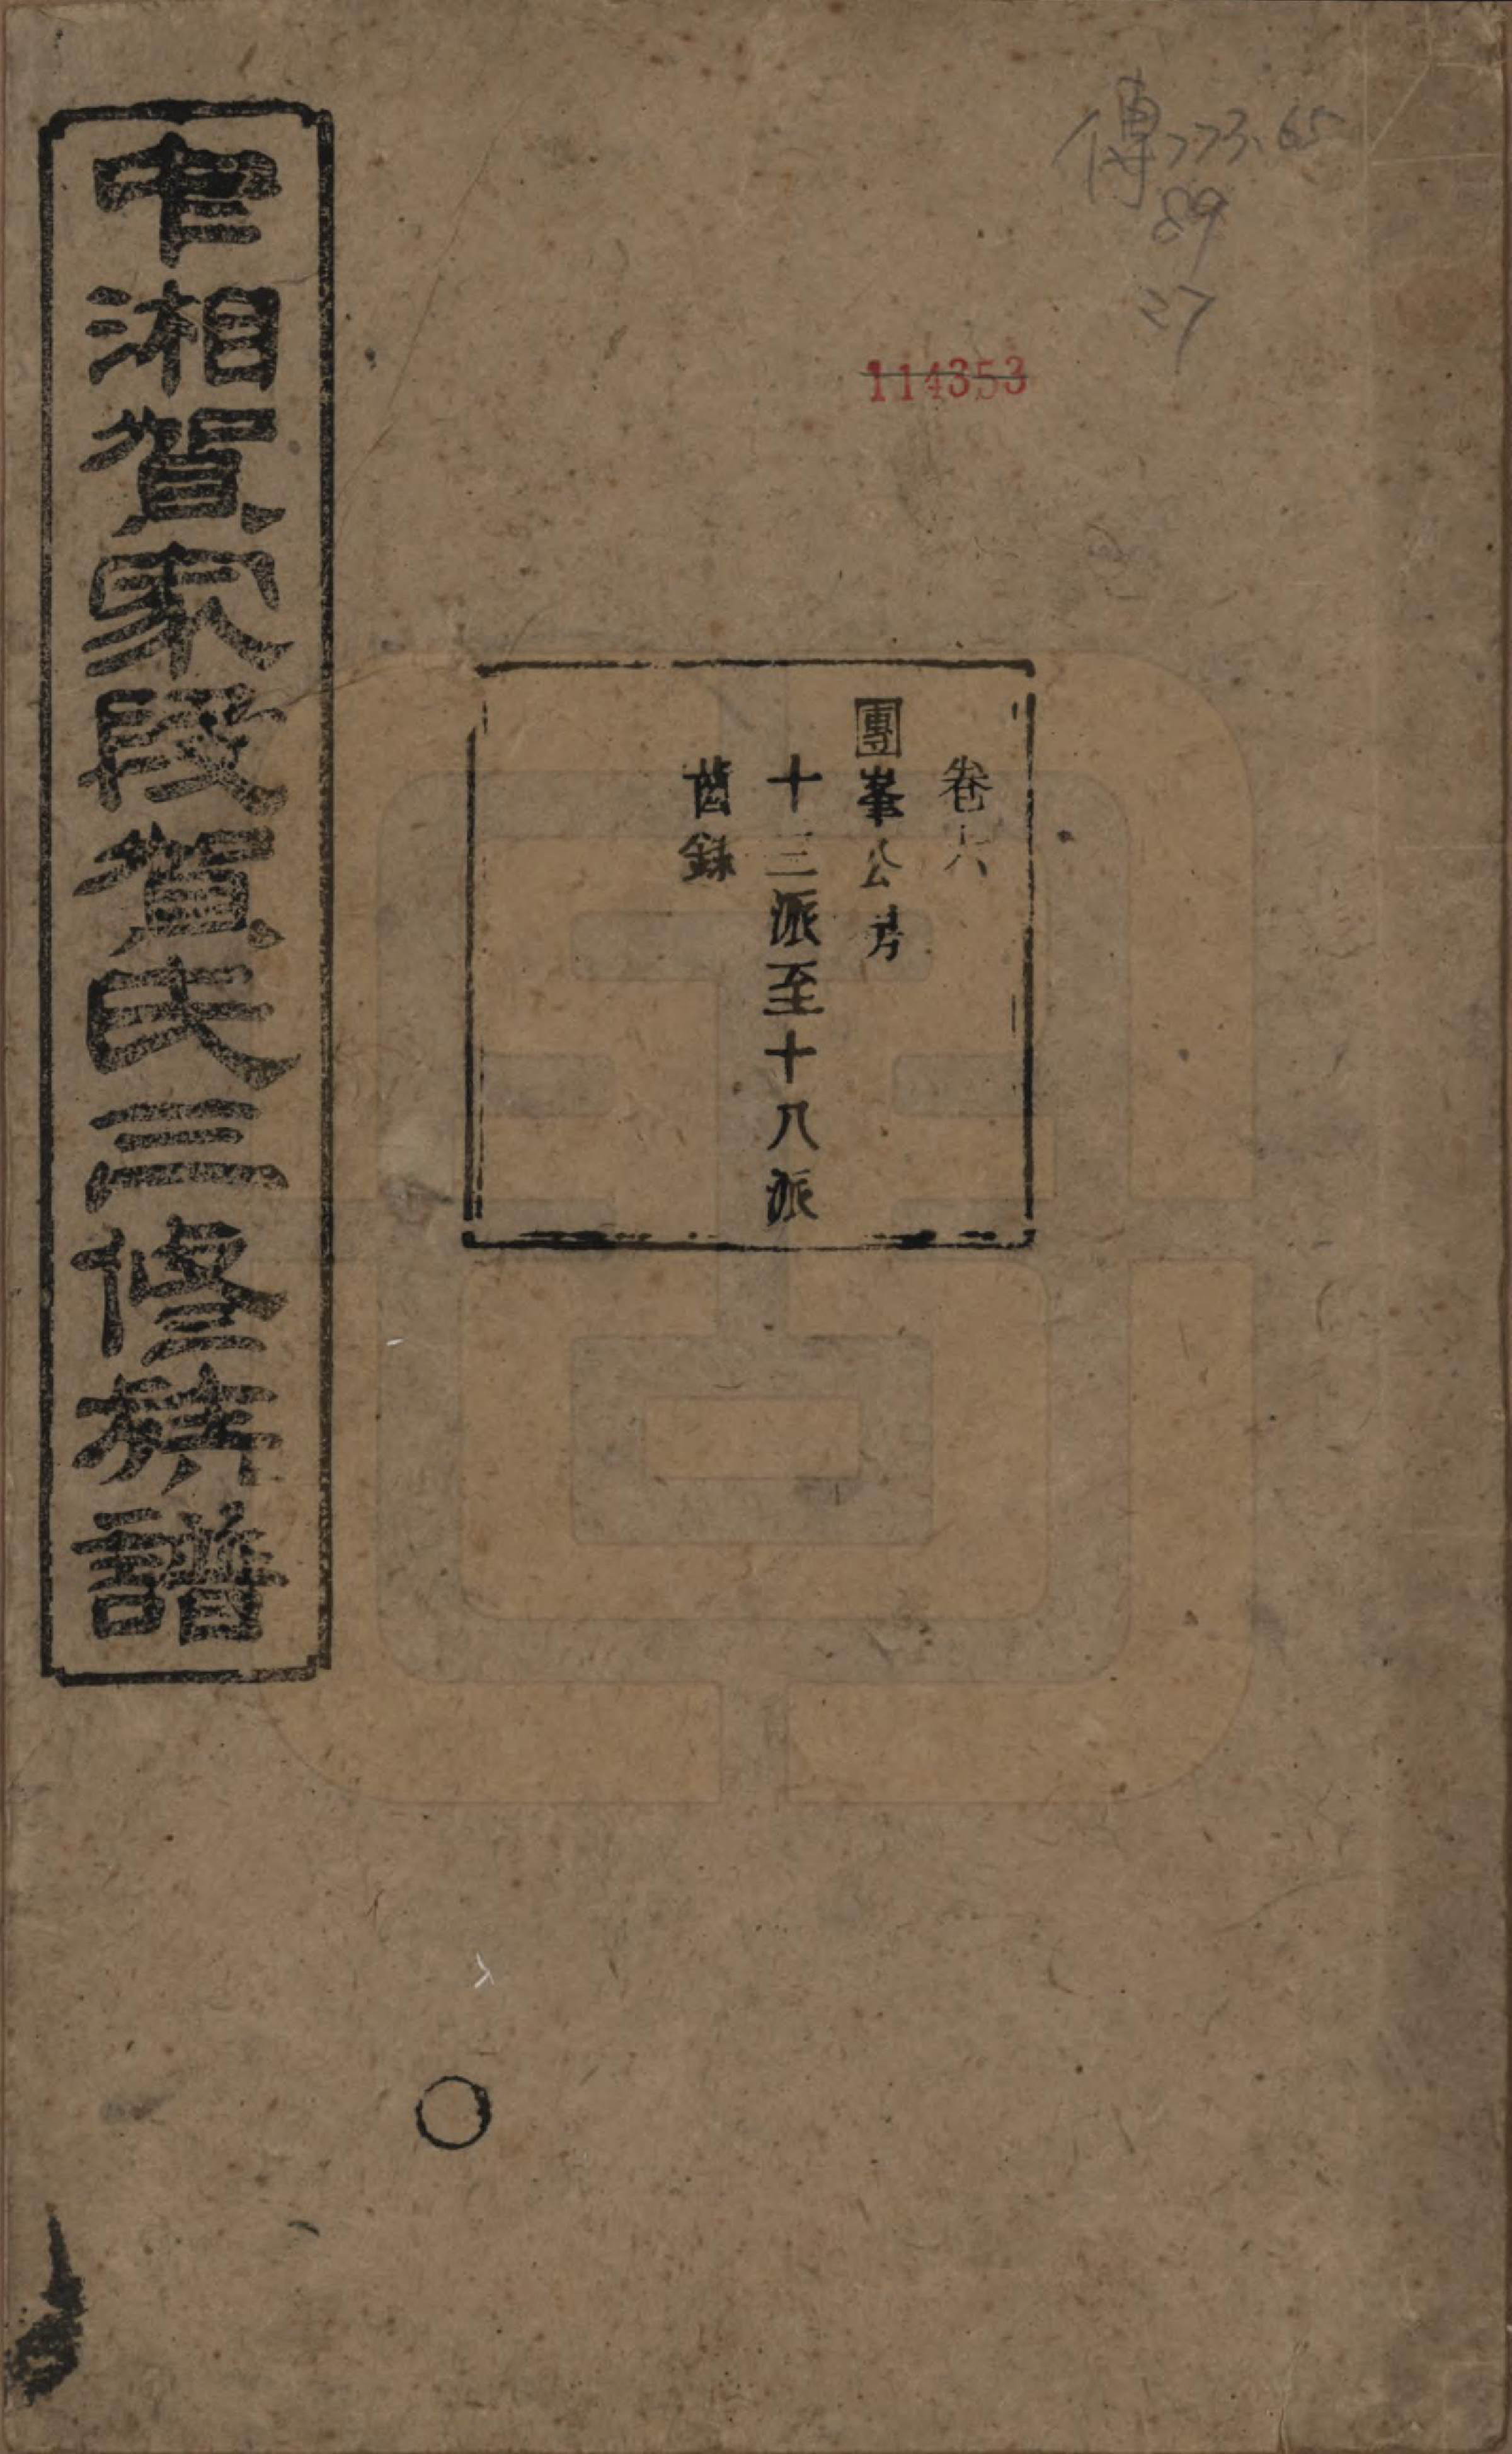 傳773.65
89
27
114353
卷六
團峯公房
十三派至十八派
齒録
中湘賀家段賀氏三修族譜